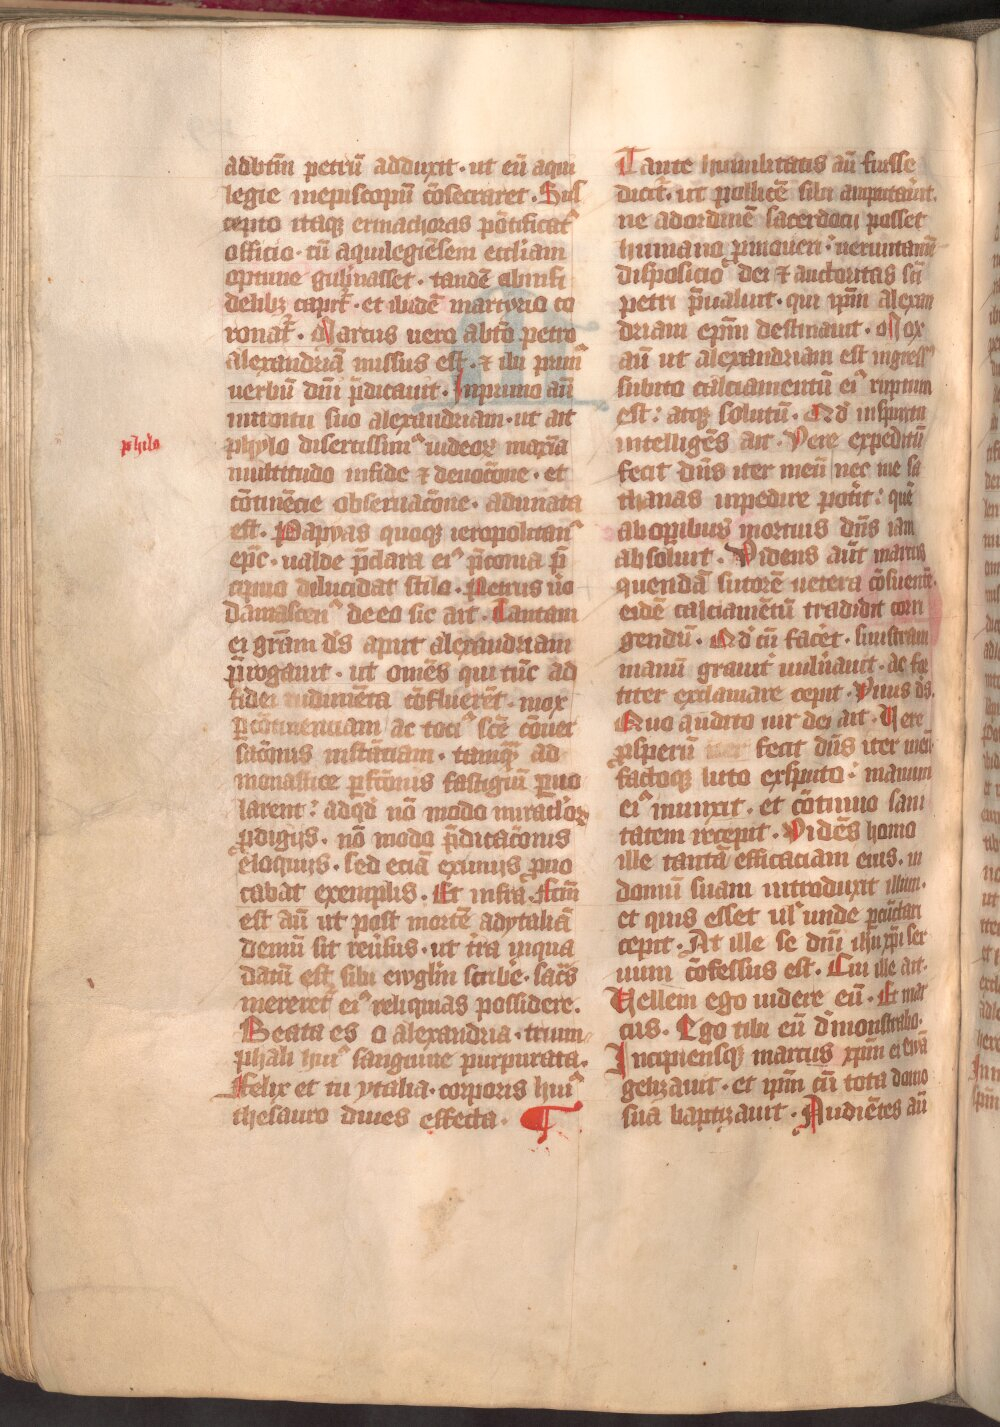 adbtm̄ petrū adduxit · ut eū aqui
legie inepiscopū c̄osecraret · Sus
cepto itaqꝫ ermachoras pōtificatꝰ
officio · cū aquilegiēsem eccliam
optime gub̄nasset · tandē abinfi
delibꝫ capit᷑ · et ibidē martyrio co
ronat᷑ · Marcus uero abtō petro
alexandriā missus est · ⁊ ibi primꝰ
uerbū dni p̄dicauit · Inprimo aū
introitu suo alexandriam · ut ait
philo
phylo disertissimꝰ iudeoꝝ maxīa
multitudo infide ⁊ deuotōne · et
cōtinēcie obseruatōne · adunata
est · Papyas quoqꝫ ieropolitanꝰ
ep̄c · ualde p̄clara eiꝰ p̄conia p̄
cipuo dilucidat stilo · Petrus ūo
Damascenꝰ deeo sic ait · Tantam
ei grām ds̄ aput alexandriam
p̄rogauit · ut omēs qui tūc ad
fidei rudimēta cōfluerēt · mox
ꝑcōtinentiam ac totiꝰ scē cōuer
satōnis instātiam · tamqꝫ ad
monastice ꝑfctōnis fastigiū ꝓuo
larent : adqd̄ nō modo miraclōꝝ
ꝓdigijs · nō modo p̄dicatōnis
eloquiis · sed eciā eximijs ꝓuo
cabat exemplis · Et infra · Actm̄
est aū ut post mortē adytaliā
demū sit reūsus · ut tr̄a inqua
datū est sibi ewglm̄ scribe · sac̄s
mereret᷑ eiꝰ reliquias possidere ·
Beata es o alexandria · trium
phali huiꝰ sanguine purpurata ·
Felix et tu ytalia · corporis huiꝰ
thesauro diues effecta · T
Tante humilitatis aū fuisse
dicit᷑ · ut pollicē sibi amputau᷑it ·
ne adordinē sacerdocii posset
humano ꝓmoueri · ueruntamē
disposicio dei ⁊ auctoritas sci
petri p̄ualuit · qui ipm̄ alexan
driam epm̄ destinauit · Mox
aū ut alexandriam est ingressꝰ
subito calciamentū eiꝰ ruptum
est : atqꝫ solutū · Qd̄ inspiritu
intelligēs ait · Vere expeditū
fecit dn̄s iter meū nec me sa
thanas inpedire pot᷑it : quē
abopibus mortuis dn̄s iam
absoluit · Videns aūt marcus
quendā sutorē uetera cōsuentē ·
eidē calciamētū tradidit corri
gendū · Qd̄ cū facet᷑ · sinistram
manū grauit᷑ uuln̄auit · ac for
titer exclamare cepit · Vnus ds̄ ·
Quo audito uir dei ait · Vere
ꝓsperū fecit dn̄s iter meū ·
factoqꝫ luto exsputo · manum
eiꝰ inunxit · et cōtinuo sani
tatem recepit · Vidēs homo
ille tantā efficaciam eius · in
domū suam introduxit illum ·
et quis esset ul̄ unde ꝑcūctari
cepit · At ille se dni ihu xpi ser
uum cōfessus est · Cui ille ait ·
Vellem ego uidere eū · Et mar
cus · Ego tibi eū d̓monstrabo ·
Incipiensqꝫ marcus xpm̄ ei ewā
gelizauit · et ipm̄ cū tota domo
sua baptizauit · Audiētes aū